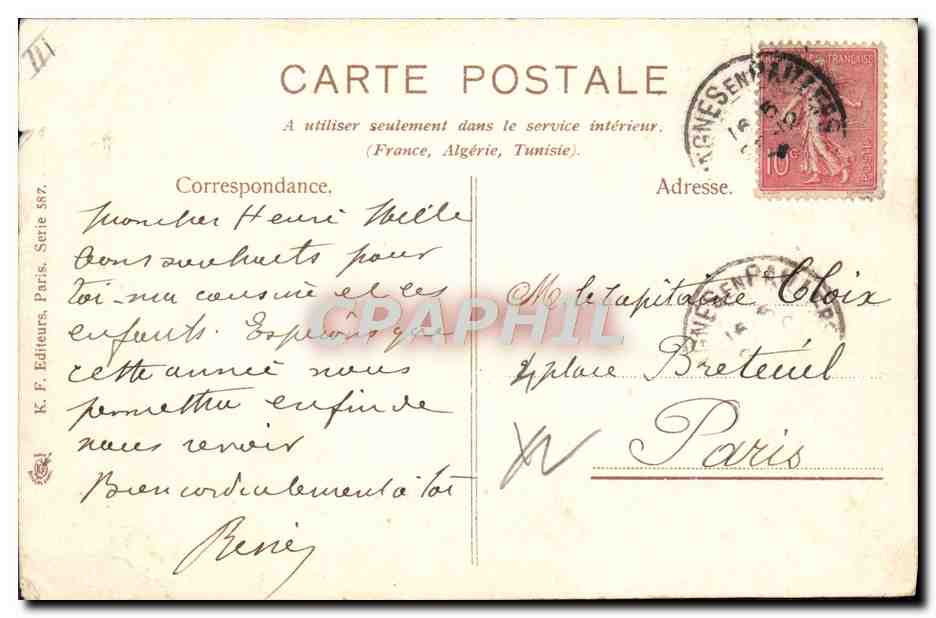 III
CARTE POSTALE
A utiliser seulement dans le service intérieur.
(France, Algérie, Tunisie).
Correspondance.
Adresse.
FRANÇAISE
POSTES
10 c
Mon cher Henri Mille
bons souhaits pour
toi - ma cousine et les
enfants. Espérons que
cette année nous
permettra enfin de
nous revoir
Bien cordialement à toi
René
M le Capitaine Cloix
4 place Breteuil
Paris
K. F. Editeurs, Paris. Serie 587.
CPAPHIL